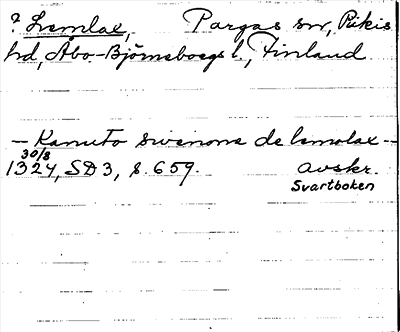 ? Lemlax, Pargas sn, Pikis
hd, Åbo-Björneborgs l., Finland
— Kanuto swenons de lemolax —
30/8
1324, SD 3, s. 659. avskr.
Svartboken